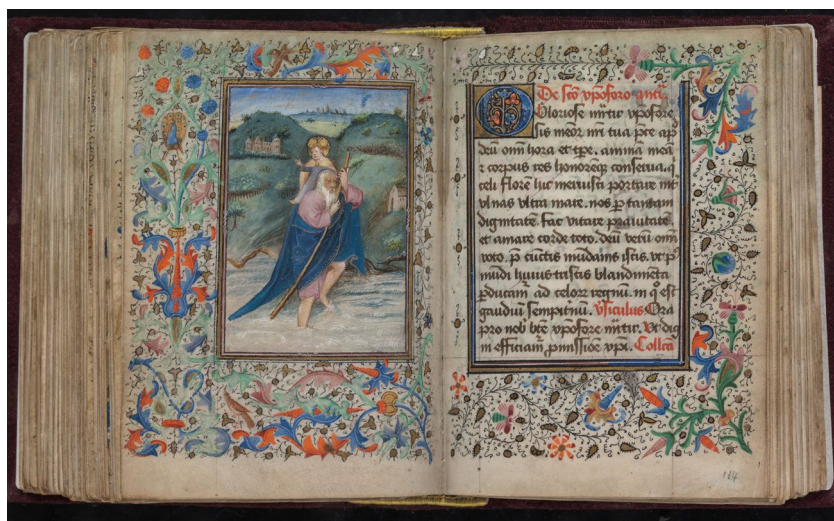 De sco xp̄oforo antī.
O Gloriose mr̄tir xp̄ofore
sis meor̄ mī tua pce ap
deū om̄i hora et tpe. aīmā meā
⁊ corpus res honoreq̄ conserua. q̄
celi florē huc meruisti portare int̄
vlnas vltra mare. nos ꝑ tantam
dignitatē. fac vitare prauitatē
et amare corde toto. deū verū om̄i
voto. p̄ cūctis mūdanis istis. vt ꝑ
mūdi huius tristis blandimēta
ꝑducam̄ ad celor̄ regnū. in q̄ est
gaudiū sempitnū. Vsiculus Ora
pro nob bt̄e xp̄ofore mr̄tir. Vt dig
ni efficiam̄ ꝓmissiōe xp̄i. Collcā
184